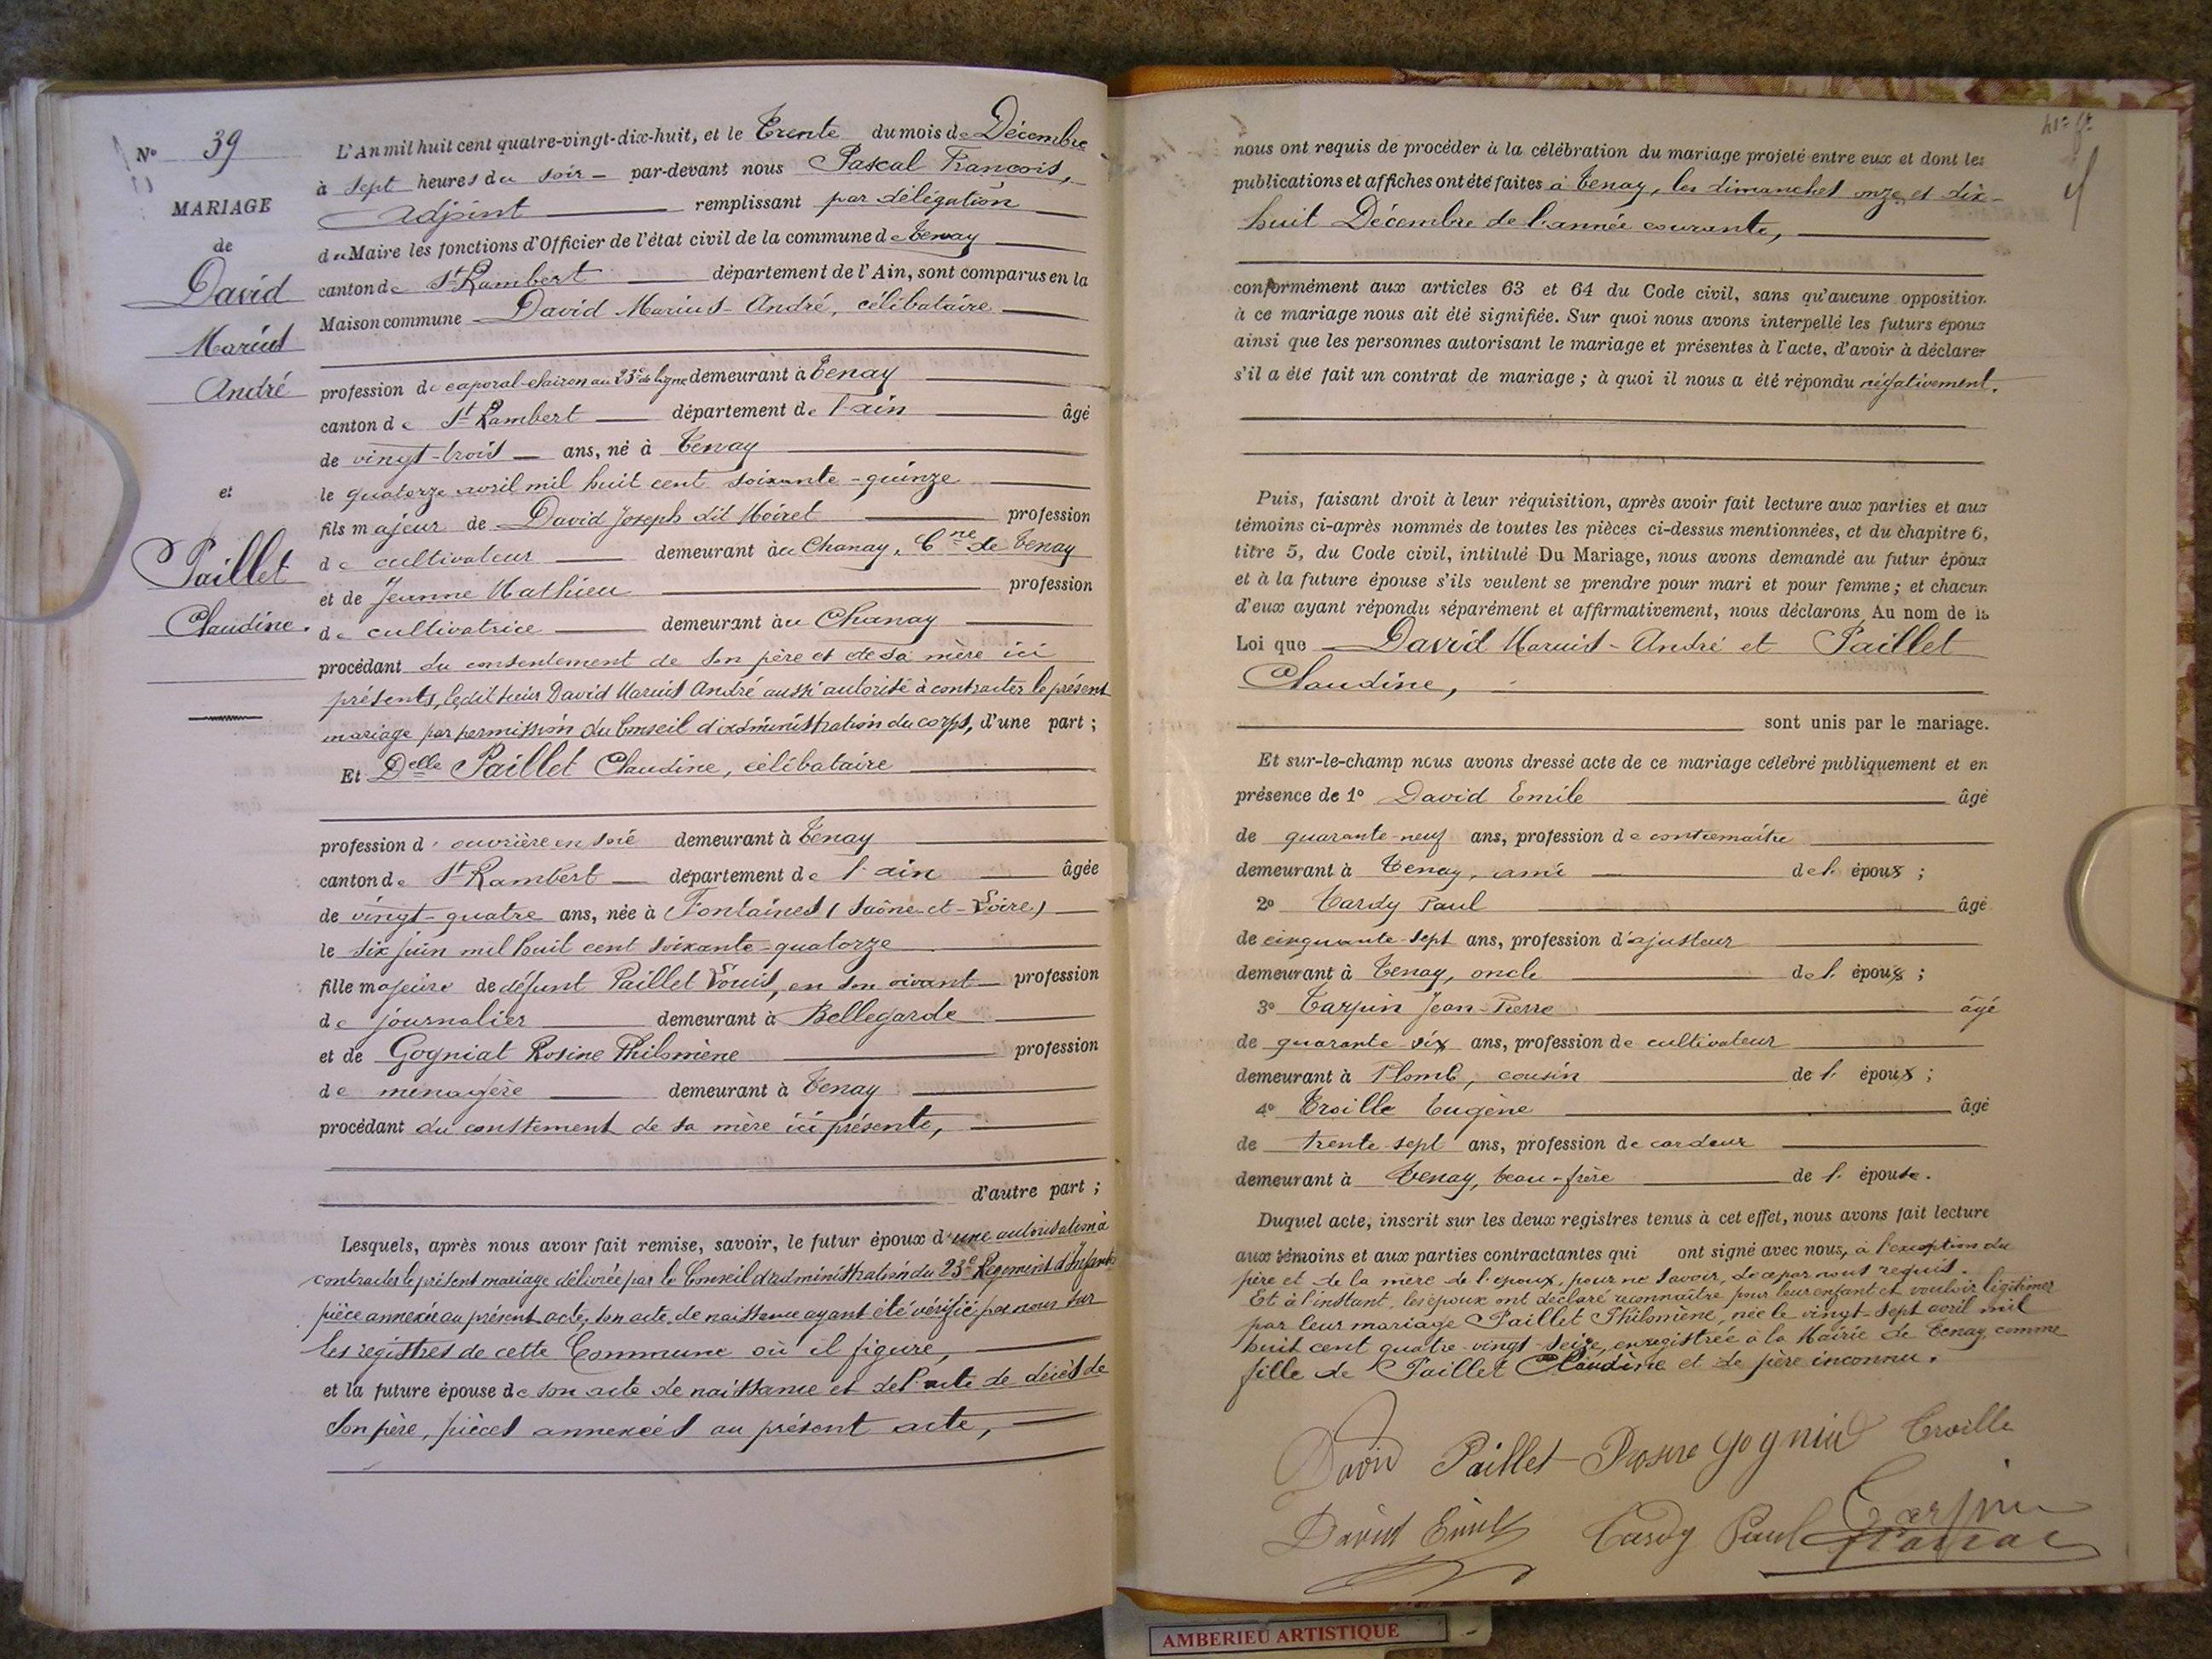 N° 39
MARIAGE
de
David
Marius
André
et
Paillet
Claudine.
L'An mil huit cent quatre-vingt-dix-huit, et le Trente du mois de Décembre
à sept heures du soir par-devant nous Pascal François,
Adjoint remplissant par délégation
du Maire les fonctions d'Officier de l'état civil de la commune de Tenay
canton de St Rambert département de l'Ain, sont comparus en la
Maison commune David Marius-André, célibataire
profession de caporal-clairon au 23e de ligne demeurant à Tenay
canton de St Rambert département de l'ain âgé
de vingt-trois ans, né à Tenay
le quatorze avril mil huit cent soixante-quinze
fils majeur de David Joseph dit Moiret profession
de cultivateur demeurant au Chanay, Cne de Tenay
et de Jeanne Mathieu profession
de cultivatrice demeurant au Chanay
procédant du consentement de son père et de sa mère ici
présents, ledit sieur David Marius André aussi autorisé à contracter le présent
mariage par permission du Conseil d'administration du corps, d'une part ;
Et Delle Paillet Claudine, célibataire
profession d'ouvrière en soie demeurant à Tenay
canton de St Rambert département de l'ain âgée
de vingt-quatre ans, née à Fontaines (Saône-et-Loire)
le six juin mil huit cent soixante-quatorze
fille majeure de défunt Paillet Louis, en son vivant profession
de journalier demeurant à Bellegarde
et de Gogniat Rosine Philomène profession
de ménagère demeurant à Tenay
procédant du constement de sa mère ici présente,
d'autre part ;
Lesquels, après nous avoir fait remise, savoir, le futur époux d'une autorisation à
contracter le présent mariage délivrée par le Conseil d'administration du 23e Régiment d'Infant
pièce annexée au présent acte, son acte de naissance ayant été vérifié par nous sur
les registres de cette Commune où il figure,
et la future épouse de son acte de naissance et de l'acte de décès de
son père, pièces annexées au présent acte,
nous ont requis de procéder à la célébration du mariage projeté entre eux et dont les
publications et affiches ont été faites à Tenay, les dimanches onze et dix-
huit Décembre de l'année courante,
conformément aux articles 63 et 64 du Code civil, sans qu'aucune opposition
à ce mariage nous ait été signifiée. Sur quoi nous avons interpellé les futurs époux
ainsi que les personnes autorisant le mariage et présentes à l'acte, d'avoir à déclarer
s'il a été fait un contrat de mariage ; à quoi il nous a été répondu négativement.
Puis, faisant droit à leur réquisition, après avoir fait lecture aux parties et aux
témoins ci-après nommés de toutes les pièces ci-dessus mentionnées, et du chapitre 6,
titre 5, du Code civil, intitulé Du Mariage, nous avons demandé au futur époux
et à la future épouse s'ils veulent se prendre pour mari et pour femme ; et chacun
d'eux ayant répondu séparément et affirmativement, nous déclarons Au nom de la
Loi que David Marius-André et Paillet
Claudine,
sont unis par le mariage.
Et sur-le-champ nous avons dressé acte de ce mariage célébré publiquement et en
présence de 1° David Emile âgé
de quarante-neuf ans, profession de contremaître
demeurant à Tenay, ami de l'époux ;
2° Tardy Paul âgé
de cinquante-sept ans, profession d'ajusteur
demeurant à Tenay, oncle de l'époux ;
3° Tarpin Jean-Pierre âgé
de quarante-six ans, profession de cultivateur
demeurant à Plomb, cousin de l'époux ;
4° Troille Eugène âgé
de trente-sept ans, profession de cardeur
demeurant à Tenay, beau-frère de l'épouse.
Duquel acte, inscrit sur les deux registres tenus à cet effet, nous avons fait lecture
aux témoins et aux parties contractantes qui ont signé avec nous, à l'exception du
père et de la mère de l'époux, pour ne savoir, de ce par nous requis.
Et à l'instant, les époux ont déclaré reconnaître pour leur enfant et vouloir légitimer
par leur mariage Paillet Philomène, née le vingt-sept avril mil
huit cent quatre-vingt-seize, enregistrée à la Mairie de Tenay comme
fille de Paillet Claudine et de père inconnu.
David Paillet Rosine Gogniat Troille
David Emile Tardy Paul Tarpin
Pascal
AMBERIEU ARTISTIQUE